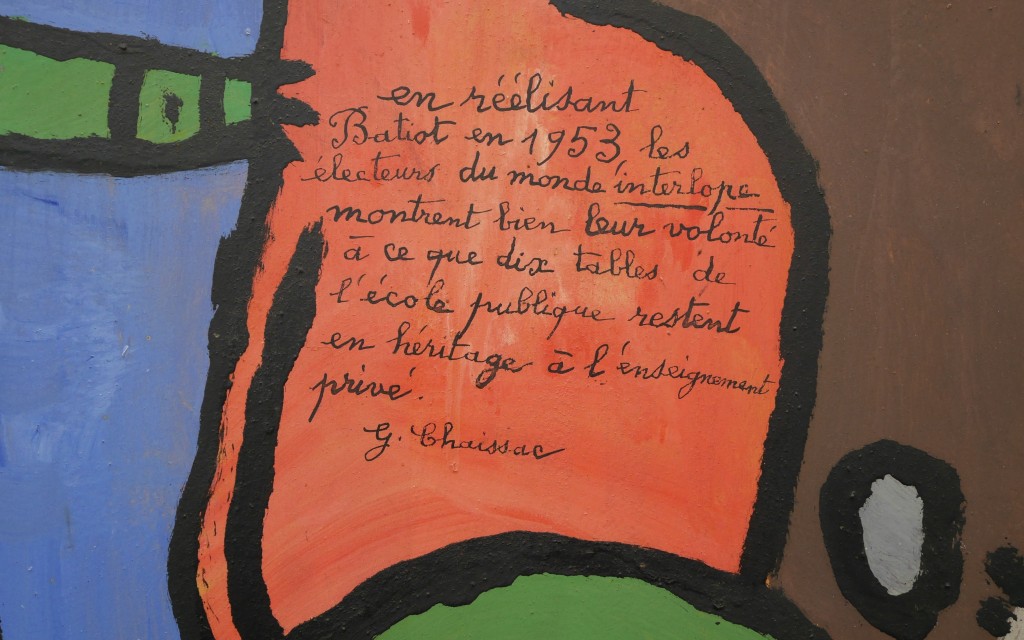 en réélisant
Batiot en 1953, les
électeurs du monde interlope
montrent bien leur volonté
à ce que dix tables de
l'école publique restent
en héritage à l'enseignement
privé.
G. Chaissac